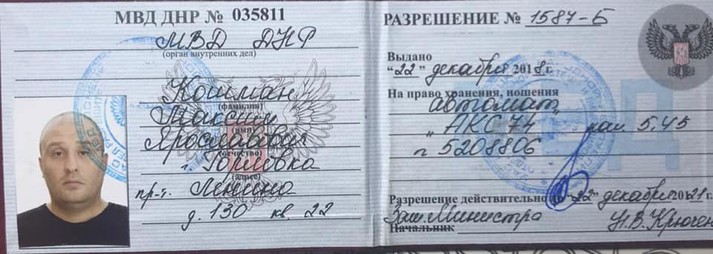 МВД ДНР № 035811
МВД ДНР
(орган внутренних дел)
Кошман
(фамилия)
Максим
(имя)
Ярославович
(отчество)
г. Горловка
(адрес)
пр-т. Ленина
д. 130 кв. 22
РАЗРЕШЕНИЕ № 1587-Б
Выдано
"22" декабря 2018 г.
На право хранения, ношения
автомат
"АКС 74 кал. 5,45
5208806
Разрешение действительно до "22" декабря 2021 г.
Зам. Министра Н.В. Крючен
Начальник